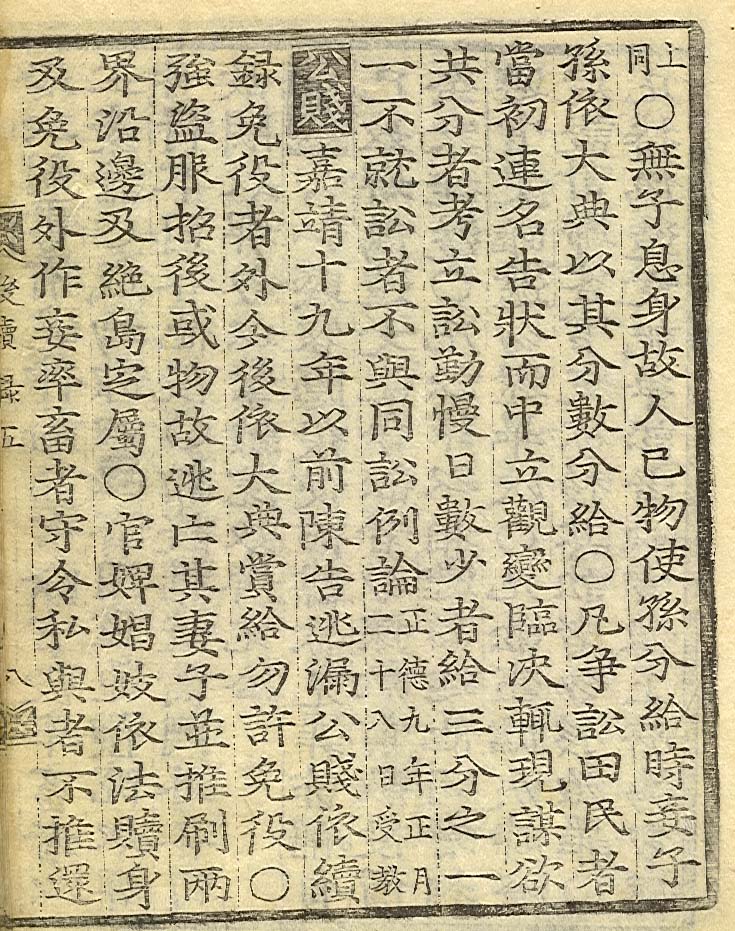 上同○無子息身故人己物使孫分給時妾子
孫依大典以其分數分給○凡爭訟田民者
當初連名告狀而中立觀變臨決輒現謀欲
共分者考立訟勤慢日數少者給三分之一
一不就訟者不與同訟例論正德九年正月二十八日受教
公賤嘉靖十九年以前陳告逃漏公賤依續
録免役者外今後依大典賞給勿許免役○
強盜服招後或物故逃亡其妻子並推刷兩
界沿邊及絶島定屬○官婢娼妓依法贖身
及免役外作妾率畜者守令私與者不推還
後續录五
八